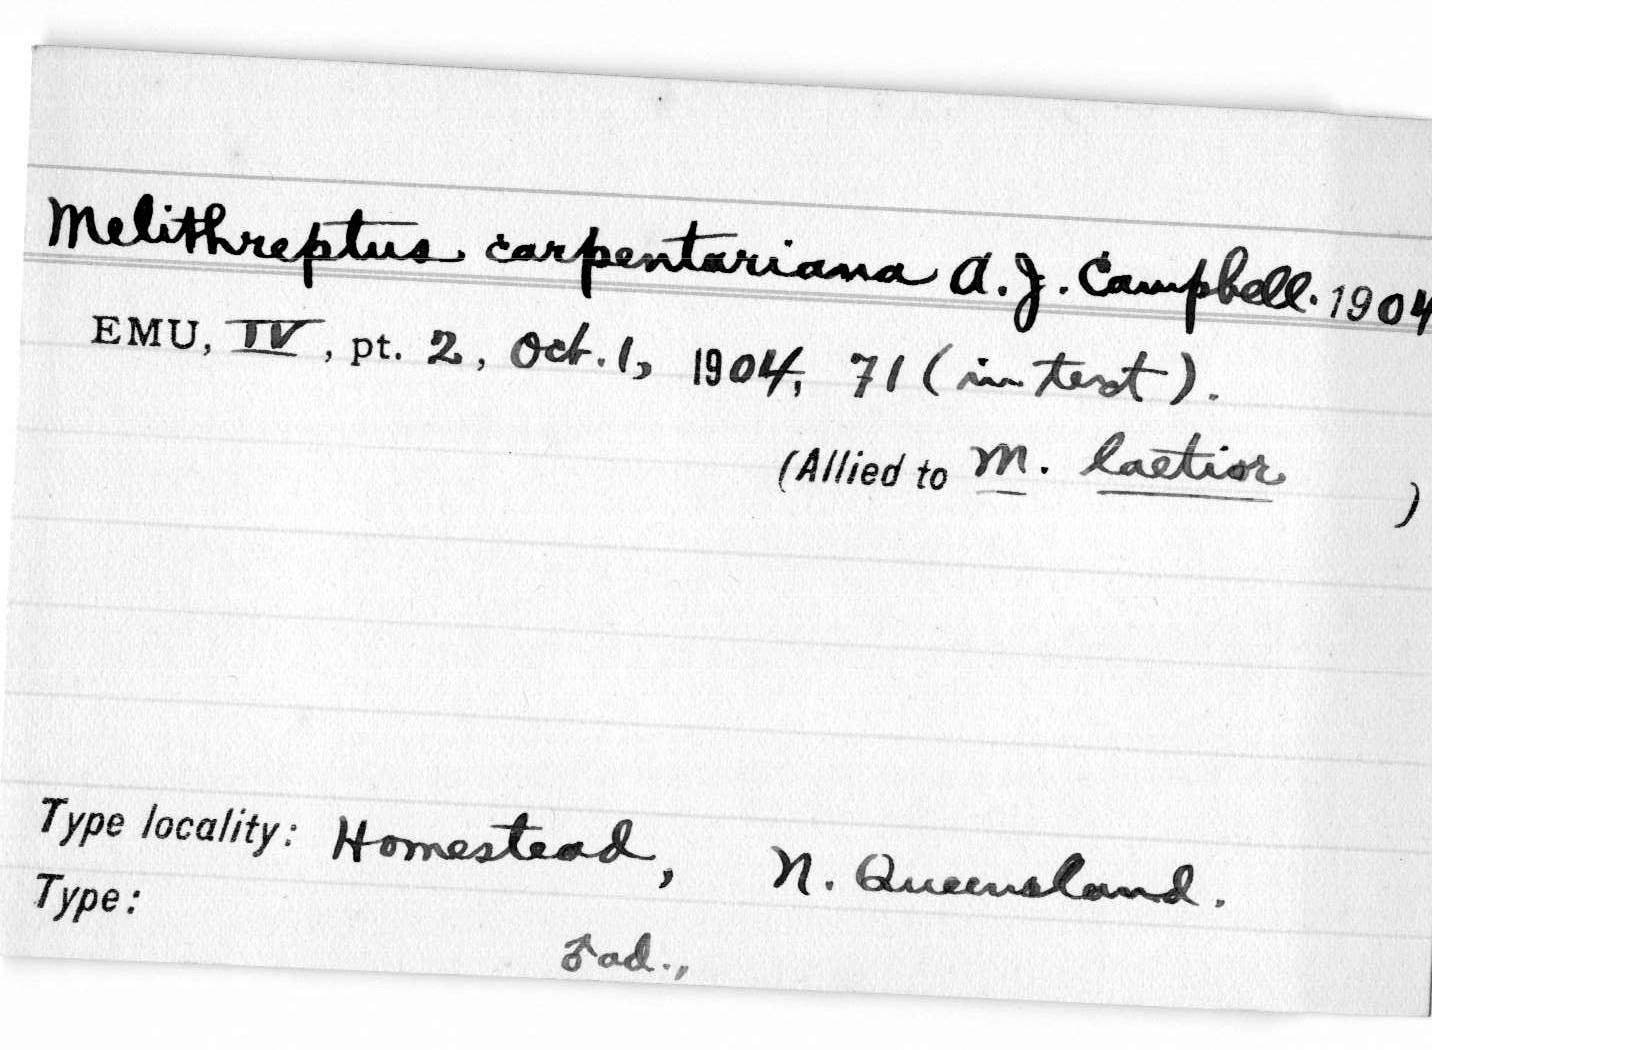 Melithreptus carpentariana A.J. Campbell. 1904
EMU, IV, pt. 2, Oct. 1, 1904, 71 (in text).
(Allied to M. laetior )
Type locality: Homestead, N. Queensland.
Type:
♂ ad.,